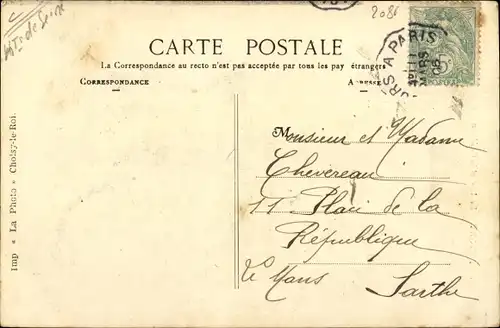 2086
CARTE POSTALE
La Correspondance au recto n'est pas acceptée par tous les pay étrangers
CORRESPONDANCE
ADRESSE
A PARIS
MARS
08
Monsieur et Madame
Chevereau
11 Place de la
République
Le Mans Sarthe
Imp « La Photo » Choisy-le-Roi.